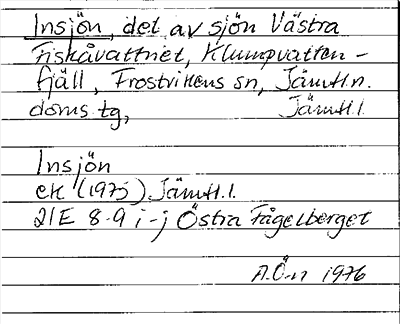 Insjön, del av sjön Västra
Fiskåvattnet, Klumpvatten-
fjäll, Frostvikens sn, Jämtl.n.
doms tg, Jämtl.l
Insjön
ek (1975) Jämtl.l.
21E 8-9 i-j Östra Fågelberget
A.Ö-n 1976